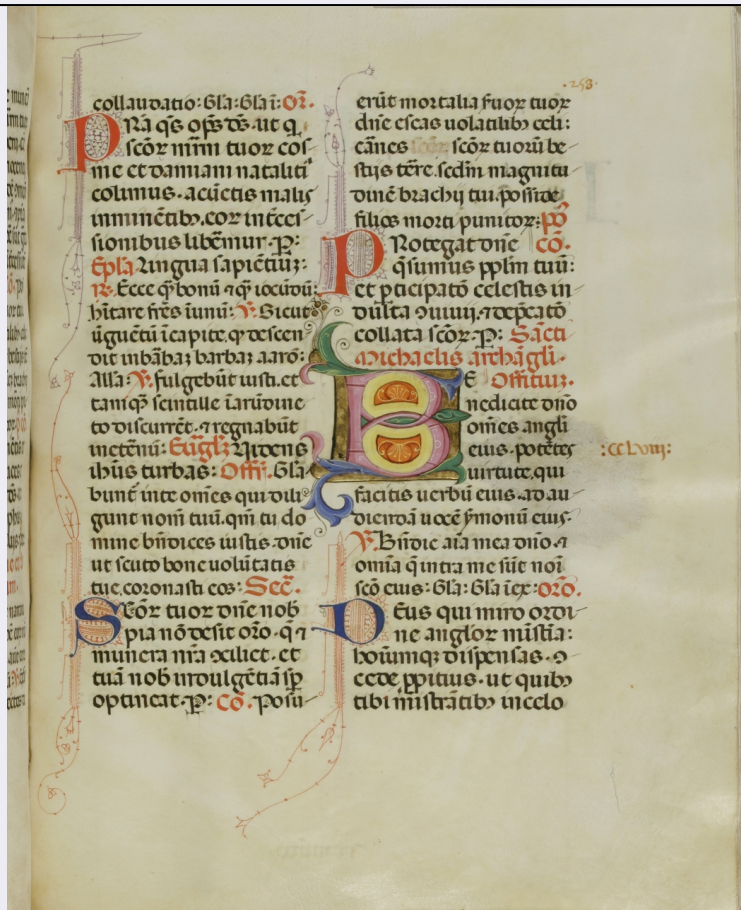 collaudatio: Gl̄a: Gl̄a ī: Or̄.
PR̄a q̄s op̄s d̄s. ut q̣
scōr mīm tuor cos
me et damiani nataliti
colimus. a cūctis malis
imminētib; eor inteeī
sionibus libēmur. P:
Ep̄la Lingua sapiētiū:
R. Ecce q̄ bonū ⁊ q̄ iocūdū
hītare frēs ī unū: V. Sicut
ūguētū ī capite. q̄ descen
dit in baba; barba; aarō:
Alla: V. fulgebūt iusti. et
tamq̄ scintille ī arūdine
to discurrēt. ⁊ regnabūt
in etēnū: Euāgl; Videns
ih̄us turbas: Off̄. Gl̄a
bunt̄ in te om̄es qui dili
gunt nom̄ tuū. qm̄ tu do
mine bn̄dices iustis. dn̄e
ut scuto bone uolūtatis
tue. coronasti eos: Sec̄.
Scōr tuor dn̄e nob
pia nō desit or̄o. q̄ ⁊
munera nr̄a ɔciliet. et
tuā nob indulgētiā sp̄
optineat. P: Cō. Posu
erūt mortalia fuor tuor
dn̄e escas uolatilib; celi:
cānes scōr tuorū be
stijs tēre. sedm̄ magnitu
dinē brachij tui. posside
filios morti punitor: Pō
PRotegat dn̄e cō.
q̄sumus pplm̄ tuū:
et pticipatō celestis in
dulta ɔuiuij. ⁊ depcatō
collata scōr. P: Sācti
Michaelis archāgli.
BE Offitiuʒ.
nedicite dn̄o
om̄es angli
eius. potētes
uirtute. qui
facitis uerbū eius. ad au
diendā uocē ẏmonū eius.
V. Bn̄dic aīa mea dn̄o. ⁊
omīa q̄ intra me sūt noī
scō eius: Gl̄a: Gl̄a ī ex: or̄o.
DEus qui miro ordi
ne anglor mīstīa:
hoīumq; dispensas. ɔ
cede ppitius. ut quib;
tibi mīstrātib; in celo
.253.
:cclviij: